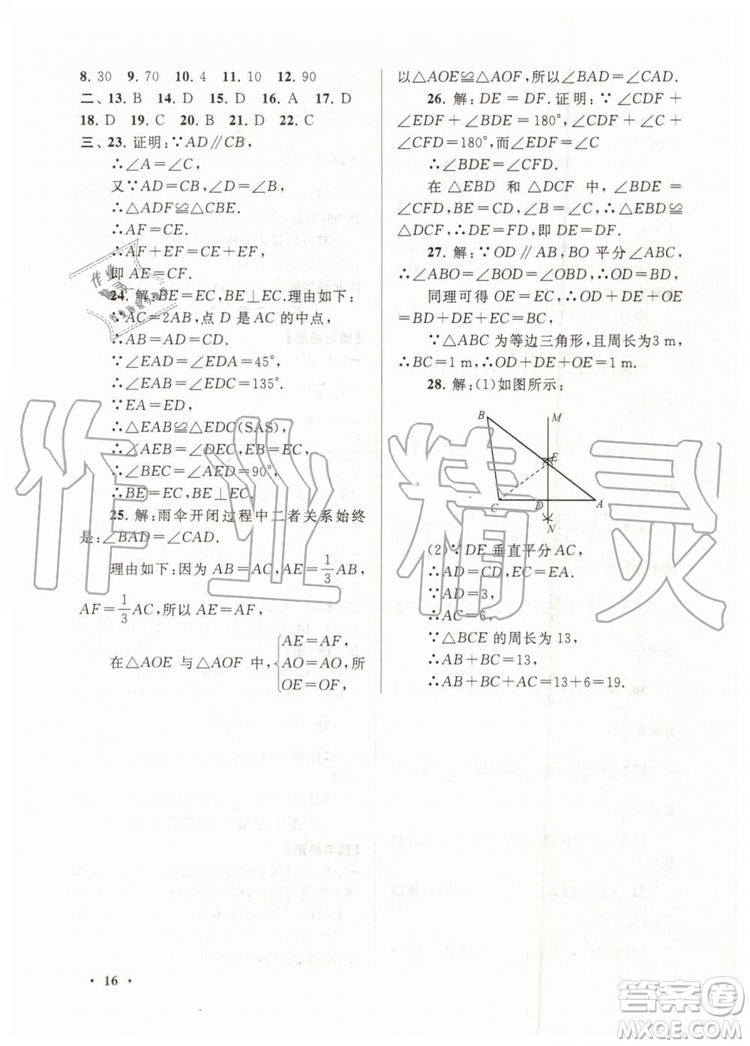 8. 30 9. 70 10. 4 11. 30° 12. 90
二、13. B 14. D 15. D 16. A 17. D
18. D 19. C 20. B 21. D 22. C
三、23. 证明:∵AD∥CB,
∴∠A=∠C,
又∵AD=CB,∠D=∠B,
∴△ADF≌△CBE.
∴AF=CE.
∴AF+EF=CE+EF,
即 AE=CF.
24. 解:BE=EC,BE⊥EC.理由如下:
∵AC=2AB,点 D 是AC的中点,
∴AB=AD=CD.
∵∠EAD=∠EDA=45°,
∴∠EAB=∠EDC=135°.
∵EA=ED,
∴△EAB≌△EDC(SAS)
∴∠AEB=∠DEC,EB=EC,
∴∠BEC=∠AED=90°,
∴BE=EC,BE⊥EC.
25. 解:雨伞开闭过程中二者关系始终
是:∠BAD=∠CAD.
理由如下:因为 AB=AC,AE=1/3AB,
AF=1/3AC,所以 AE=AF,
在△AOE 与△AOF 中,{AE=AF, AO=AO, OE=OF, 所
以△AOE≌△AOF,所以∠BAD=∠CAD.
26. 解:DE=DF.证明:∠CDF+
∠CFD+∠C=180°,∠BDE+∠EDF+
∠CDF=180°,而∠EDF=∠C
∴∠BDE=∠CFD.
在△EBD 和△DCF 中,∠BDE=
∠CFD,BE=CD,∠B=∠C,
∴△EBD≌△DCF,即 DE=DF.
27. 解:∵OD∥AB,BO 平分∠ABC,
∴∠ABO=∠BOD=∠OBD,∴BD=OD,
同理可得 OE=EC,
∵△ABC 为等边三角形,且周长为3 m,
∴BC=1 m,∴OD+DE+OE=1 m.
28. 解:(1)如图所示:
B M
E
C D A
N
(2)∵DE 垂直平分 AC,
∴AD=CD,EC=EA.
∵AD=3,
∴AC=6,
∵△BCE 的周长为 13,
∴AB+BC=13,
∴AB+BC+AC=13+6=19.
作业精灵
• 16 •
答案圈
MXQE.COM